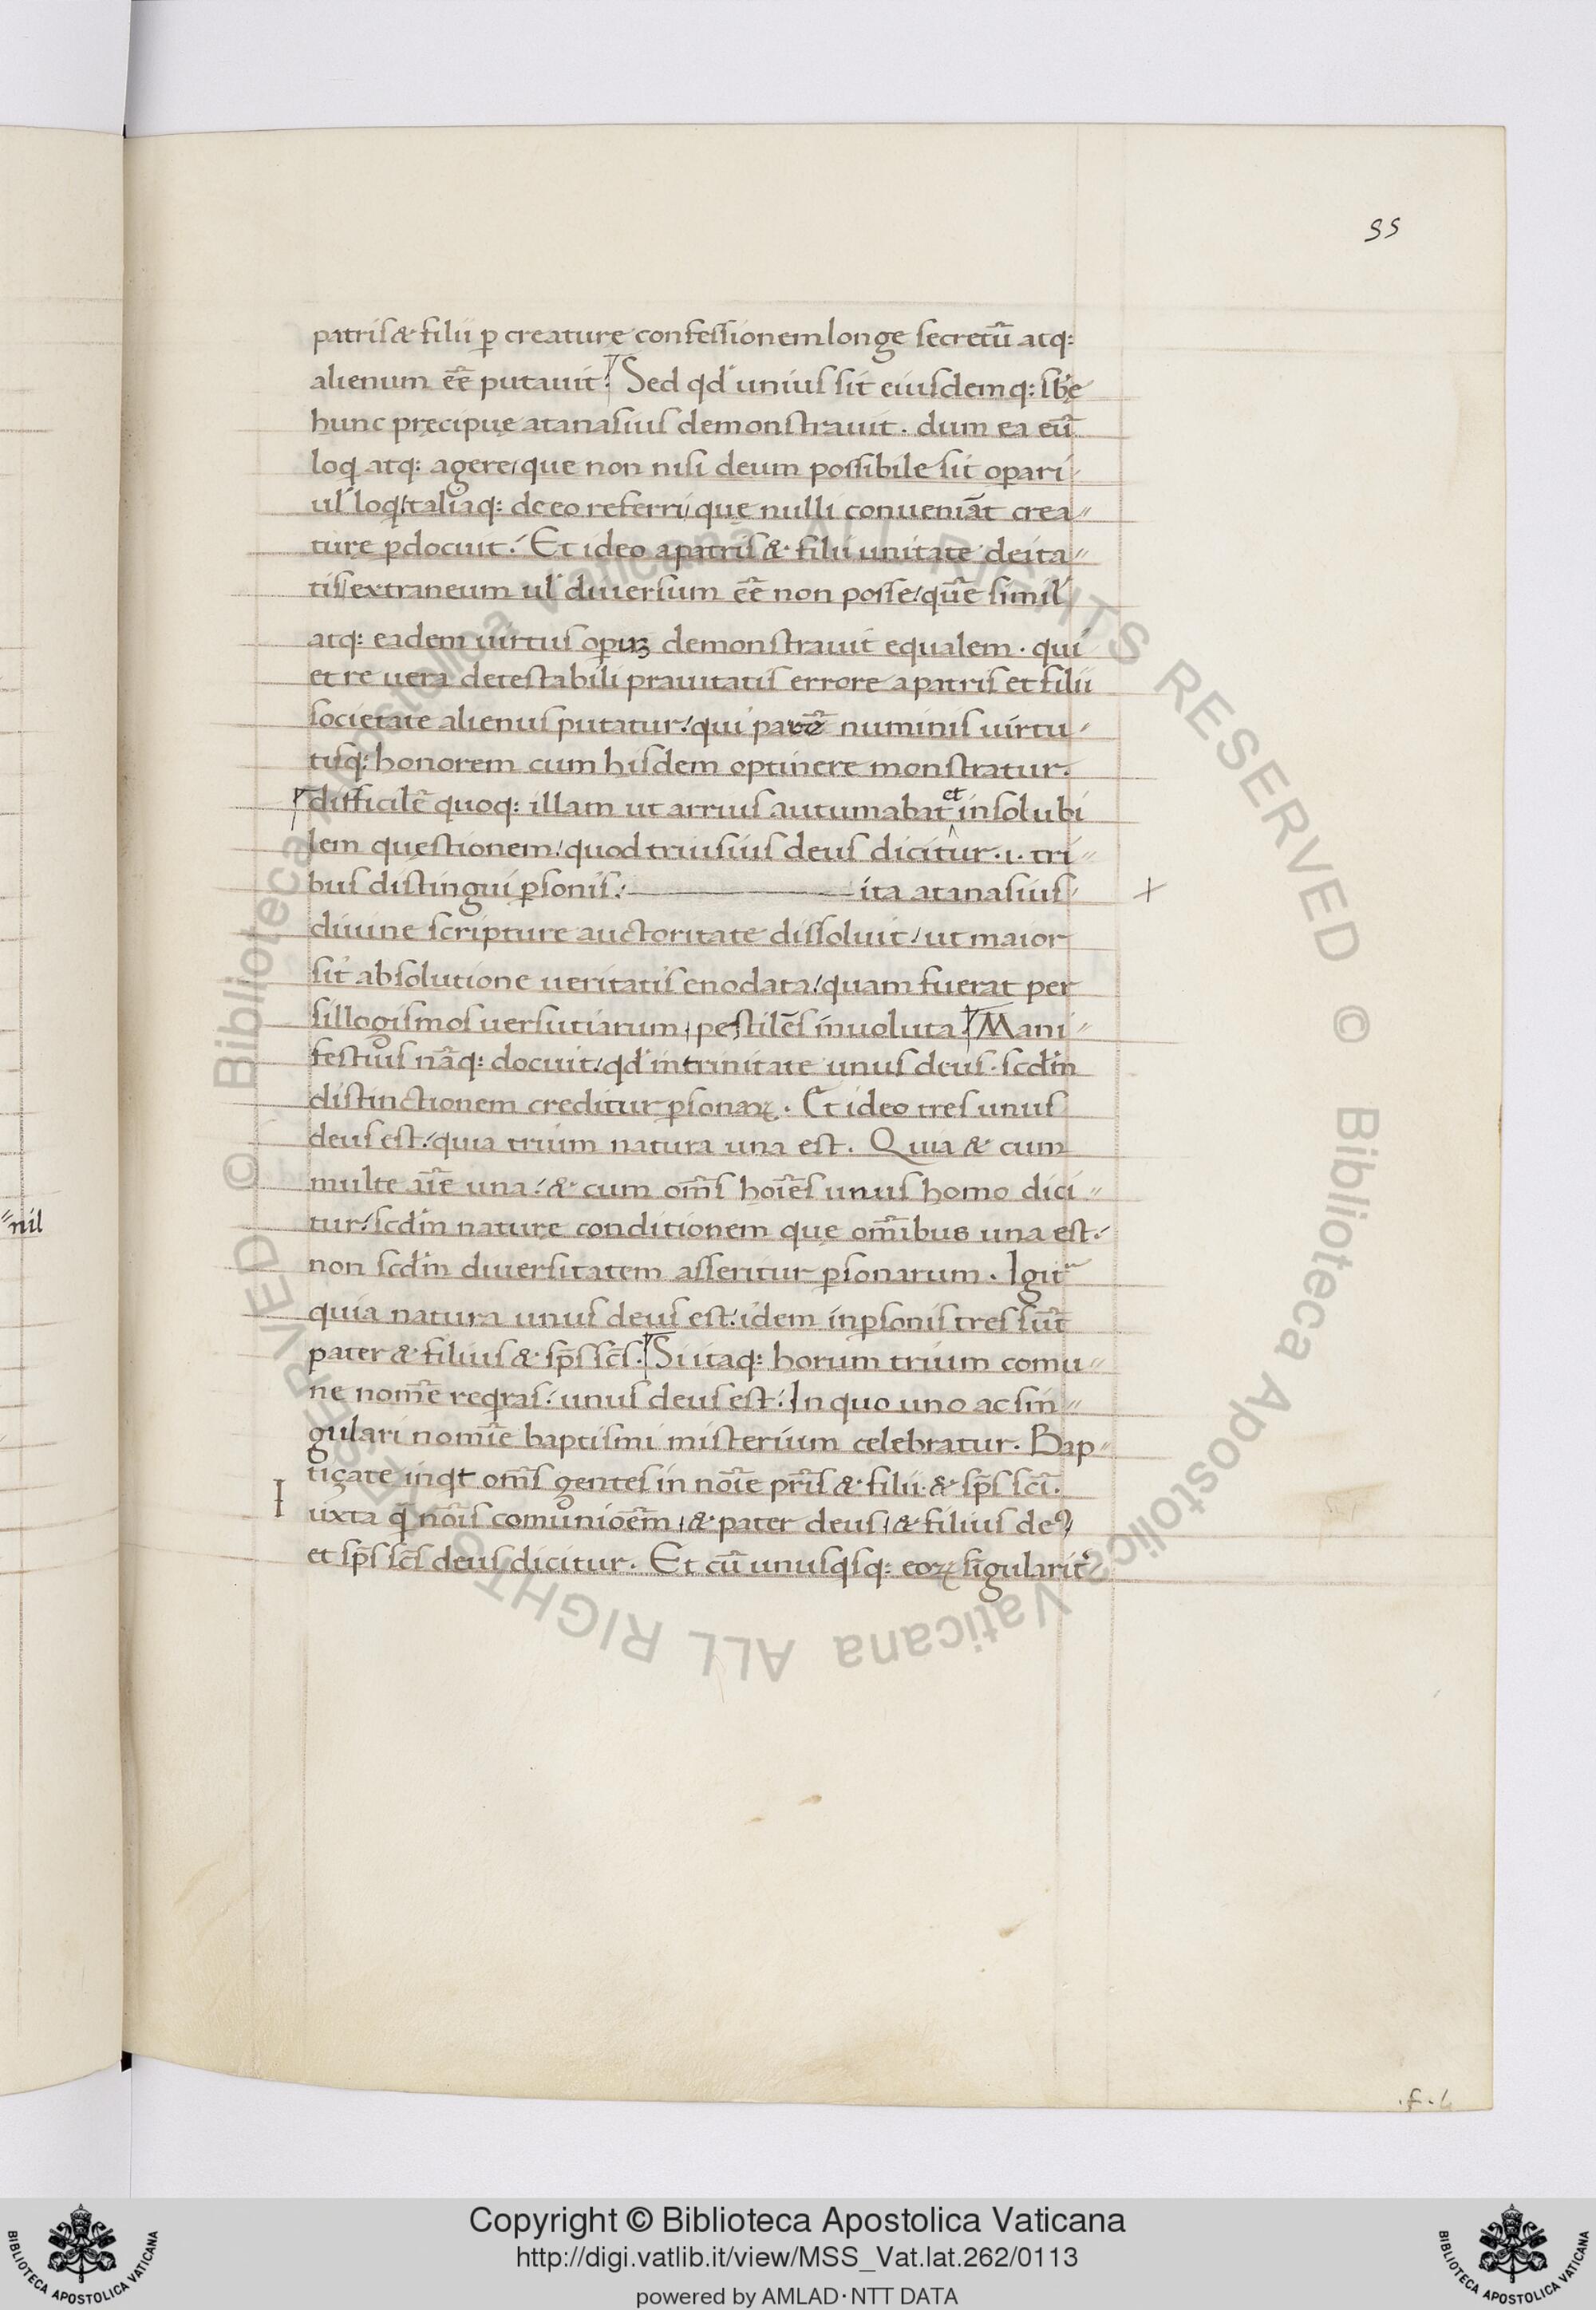 55
patris & filii ꝑ creature confessionem longe secretū atq:
alienum eē̄ putauit. Sed qd' unius sit eiusdemq: sb̄e
hunc precipuę atanasius demonstrauit. dum ea eū
loq̄ atq: agere, que non nisi deum possibile sit oꝑari
ul' loq̄, taliaq: de eo referri, quę nulli conueniāt crea-
ture ꝑdocuit. Et ideo a patris & filii unitate deita-
tis extraneum ul' diuersum eē̄ non posse, quē simil'
atq: eadem uirtus oꝑuꝫ demonstrauit equalem. qui
et re uera detestabili prauitatis errore a patris et filii
societate alienus putatur, qui numinis uirtu-
tisq: honorem cum hisdem optinere monstratur.
difficilē quoq: illam ut arrius autumabat et insolubi
lem questionem, quod triusius deus dicitur .i. tri-
bus distingui ꝑsonis. ita atanasius
diuine scripture auctoritate dissoluit, ut maior
sit absolutione ueritatis enodata, quam fuerat per
sillogismos uersutiarum, pestilēs inuoluta. Mani-
festius nāq: docuit, qd' in trinitate unus deus. scdm̄
distinctionem creditur ꝑsonaꝝ. Et ideo tres unus
deus est, quia trium natura una est. Quia & cum
multe aīe una, & cum om̄s hoīes unus homo dici-
tur, scdm̄ nature conditionem quę om̄ibus una est.
non scdm̄ diuersitatem asseritur ꝑsonarum. Igit̄
quia natura unus deus est, idem in ꝑsonis tres sūt
pater & filius & sp̄s sc̄s. Si itaq: horum trium comu-
ne nom̄e req̄ras, unus deus est. In quo uno ac sin-
gulari nomīe baptismi misterium celebratur. Bap-
tiçate inq̄t om̄s gentes in nōīe pr̄is & filii & sp̄s sc̄i.
I
uxta q̄ nōis comunioēm̄, & pater deus, & filius deꝰ,
et sp̄s sc̄s deus dicitur. Et cū unusq̄sq: eoꝝ sīgularit̄
+
nil
.f.4
Copyright © Biblioteca Apostolica Vaticana
http://digi.vatlib.it/view/MSS_Vat.lat.262/0113
powered by AMLAD·NTT DATA
BIBLIOTECA APOSTOLICA VATICANA
BIBLIOTECA APOSTOLICA VATICANA
© Biblioteca Apostolica Vaticana ALL RIGHTS RESERVED © Biblioteca Apostolica Vaticana ALL RIGHTS RESERVED